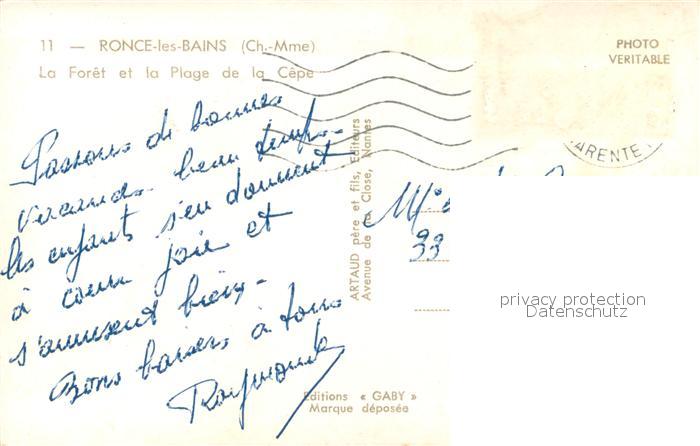 11 — RONCE-les-BAINS (Ch.-Mme)
La Forêt et la Plage de la Cèpe
PHOTO
VERITABLE
ARENTE
Passons de bonnes
vacances beau temps.
les enfants s'en donnent
à cœur joie et
s'amusent bien.
Bons baisers à tous
Raymonde
ARTAUD père et fils, Editeurs
Avenue de la Close, Nantes
M
Editions « GABY »
Marque déposée
privacy protection
Datenschutz